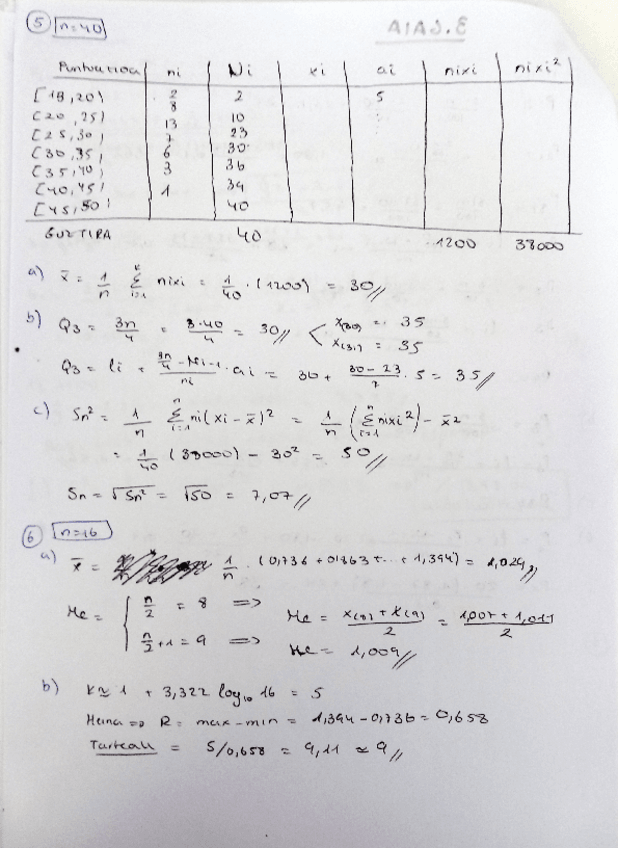 5 n=40 AIAS.E
Puntuazioa ni Ni xi ai nixi nixi²
[18,20) 2 2 5
[20,25) 8 10
[25,30) 13 23
[30,35) 7 30
[35,40) 6 36
[40,45) 3 39
[45,50) 1 40
GUZTIRA 40 1200 38000
a) x̄ = 1/n Σ nixi = 1/40 · (1200) = 30//
b) Q3 = 3n/4 = 3·40/4 = 30// < x(30) = 35
x(31) = 35
Q3 = li + (3n/4 - Ni-1)/ni · ai = 30 + (30-23)/7 · 5 = 35//
c) Sn² = 1/n Σ ni(xi - x̄)² = 1/n (Σ nixi²) - x̄²
= 1/40 (38000) - 30² = 50//
Sn = √Sn² = √50 = 7,07//
6 n=16
a) x̄ = 1/n · (0,736 + 0,863 + ... + 1,394) = 1,029//
Me = { n/2 = 8 => Me = (x(8) + x(9))/2 = (1,007 + 1,011)/2
n/2 + 1 = 9 => Me = 1,009//
b) K ≃ 1 + 3,322 log10 16 = 5
Heina => R = max - min = 1,394 - 0,736 = 0,658
Tarteak = 5/0,658 = 9,11 ≃ 9//